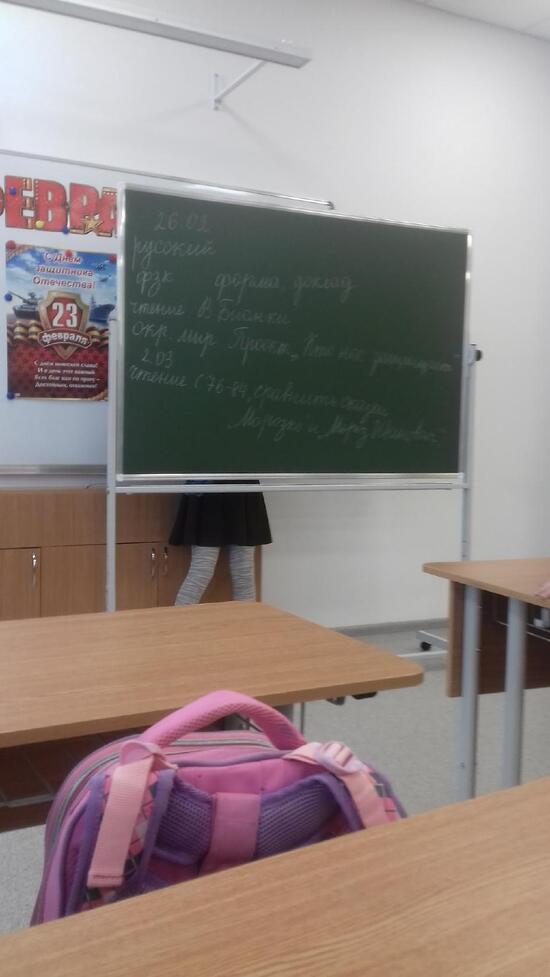 ФЕВРА
С Днём
защитника
Отечества!
23
февраля
С днём воинской славы!
И в день этот важный
Достойным, отважным!
26.02
русский
фзк форма, доклад
чтение В. Бианки
окр. мир. Проект „Кто нас защищает"
2.03
чтение с 76-84, сравнить сказки
„Морозко" и „Мороз Иванович"